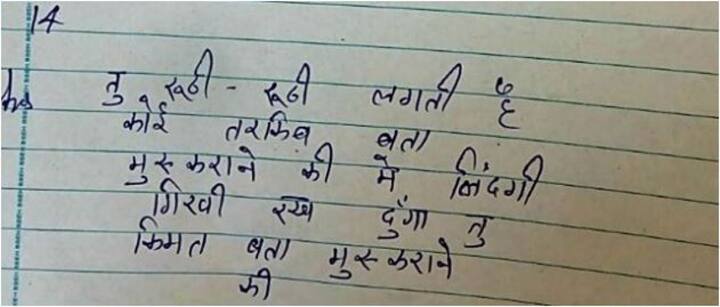 14
तु रूठी - रूठी लगती है
कोई तरकिब बता
मुस्कराने की मे जिंदगी
गिरवी रख दुँगा तु
किमत बता मुस्कराने
की